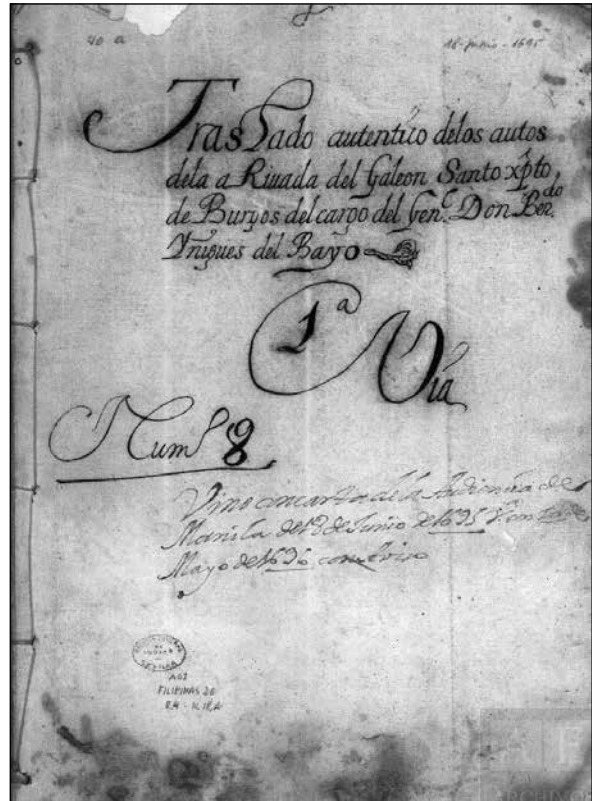 40 a
18-Junio-1695
Traslado autentico delos autos
dela a Riuada del Galeon Santo xpto,
de Burgos del cargo del Gen.l Don Ber.do
Yñigues del Bayo
1a Via
Num.o 8
Vino con carta de la Audiencia de
Manila de 18 de Junio de 1695 V. en
Mayo de 1696 con
ARCHIVO
INDIAS
SEVILLA
AGI
FILIPINAS 26
R4 - N.18A
ARCHIVOS